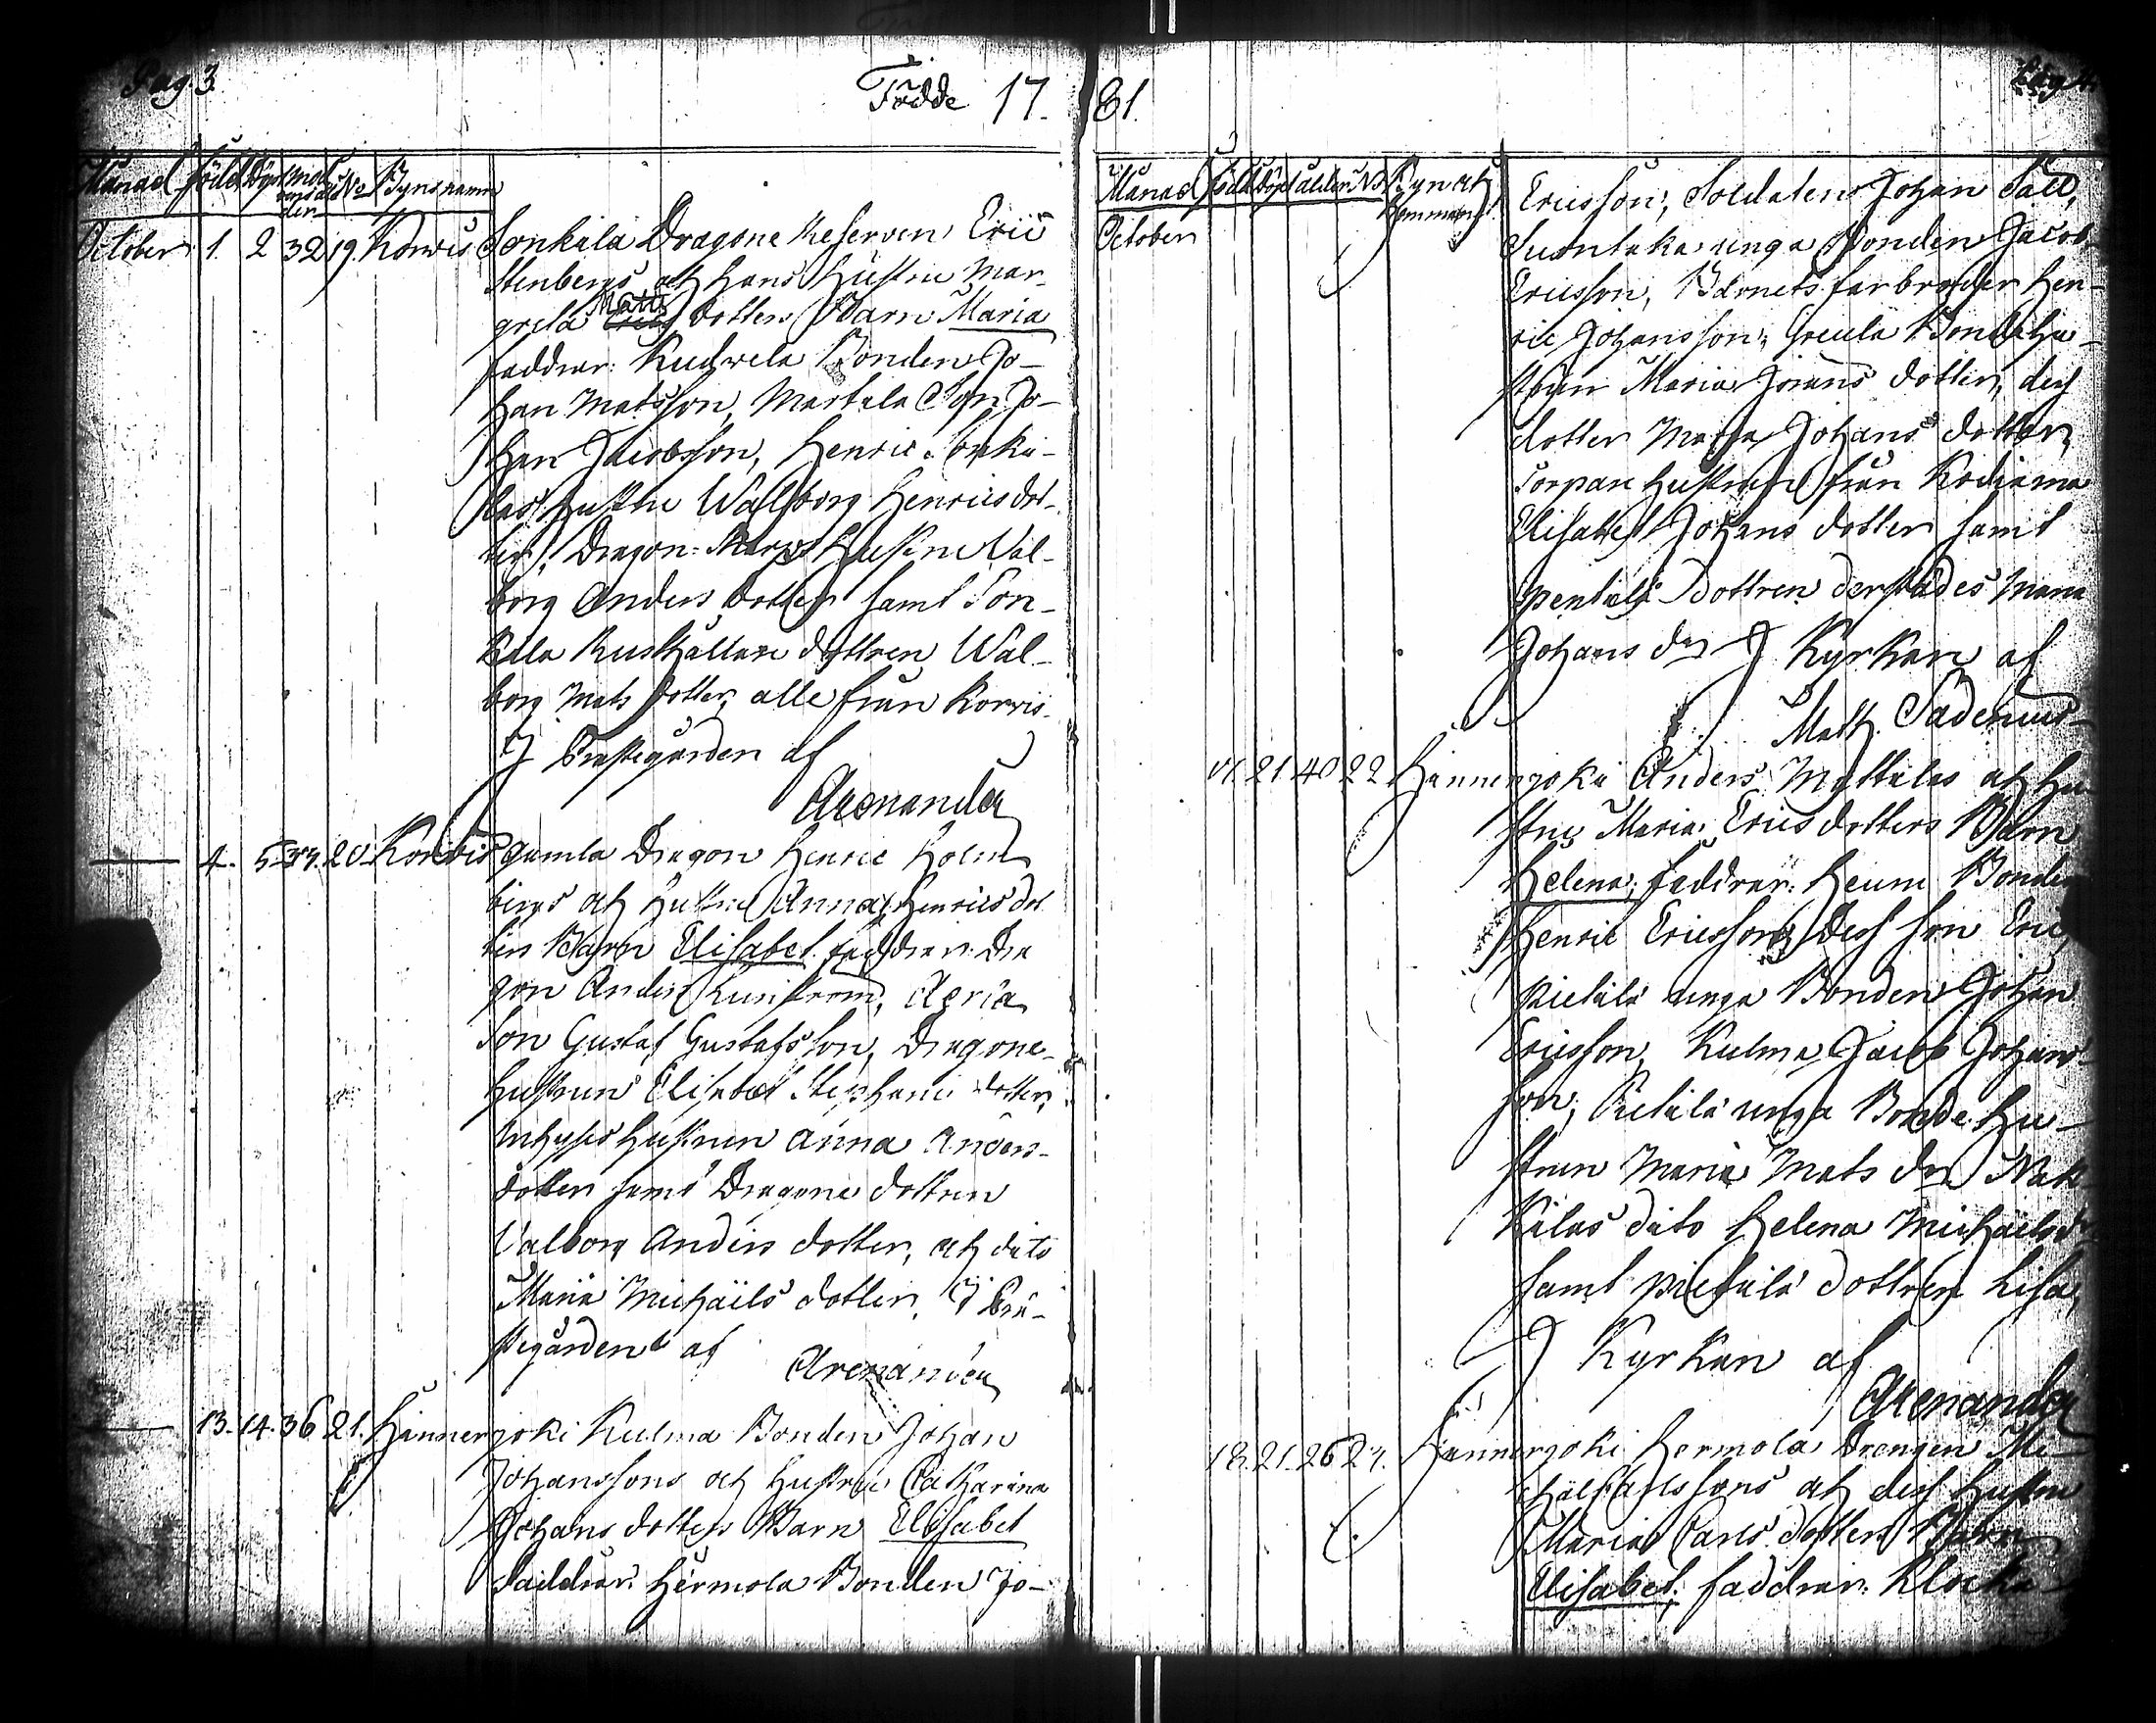 Pag. 3.
Födde 17
Månad Född Döpt Mod
rens ål
der No Byns namn
October 1. 2 32 19. Korvis Sonkila Dragone Reserven Eric
Stenbergs och hans Hustru Mar-
greta Matts dotters Barn Maria
faddrar: Kudvela Bonden Jo-
han Matsson, Martela Son Jo-
han Jacobsson, Henric Sonki-
las Hustru Walborg Henricsdot-
ter, Dragon Hustru Val-
borg Anders dotter samt Son-
kila Rusthållare dottren Wal-
borg Mats dotter, alle från Korvis.
I Prestegården af
Arenander
4. 5 20. Korvis gamla Dragon Henric Holm
bergs och Hustru Anna Henrics dot
ters Barn Elisabet faddrar: Dra
gon Anders
Son Gustaf Gustafsson, Dragone-
hustrun Elisabet Stephans dotter,
Inhyses hustrun Anna Anders-
dotter samt Dragone dottren
Valborg Anders dotter, och dito
Maria Michaels dotter. I Prä-
stegården af
Arenander
13. 14. 36 21. Hinnerjoki Kulma Bonden Johan
Johanssons och Hustru Catharina
Johans dotters Barn Elisabet
Faddrar: Hermola Bonden Jo-
81.
Pag. 4.
Månad Född Döpt ålder No Byn och
Hemman
October
Ericsson, Soldaten Johan Säll,
Suontaka unga Bonden Jacob
Ericsson, Barnets farbroder Hen-
ric Johansson, Bondehu-
strun Maria Jörans dotter, dess
dotter Maria Johans dotter,
Torpare hustrun från Kodiama
Elisabet Johans dotter samt
Pentilä dottren derstädes Maria
Johans dr I Kyrkan af
Math. Sadenius
21 40 22 Hinnerjoki Anders Mattilas och Hu-
strus Maria Erics dotters Barn
Helena; faddrar: Heinu Bonden
Henric Ericsson, dess son Eric,
Pietilä unga Bonden Johan
Ericsson, Kulma Jacob Johans-
son; Pietilä unga Bonde Hu-
strun Maria Mats dr
kilas dito Helena Michaels dr
samt Pietilä dottren Lisa,
I Kyrkan af
Arenander
18. 21. 26 23. Hinnerjoki Hermola Drengen Mi-
chal Carlssons och dess Hustru
Maria Carls dotters Barn
Elisabet; faddrar: Klocka